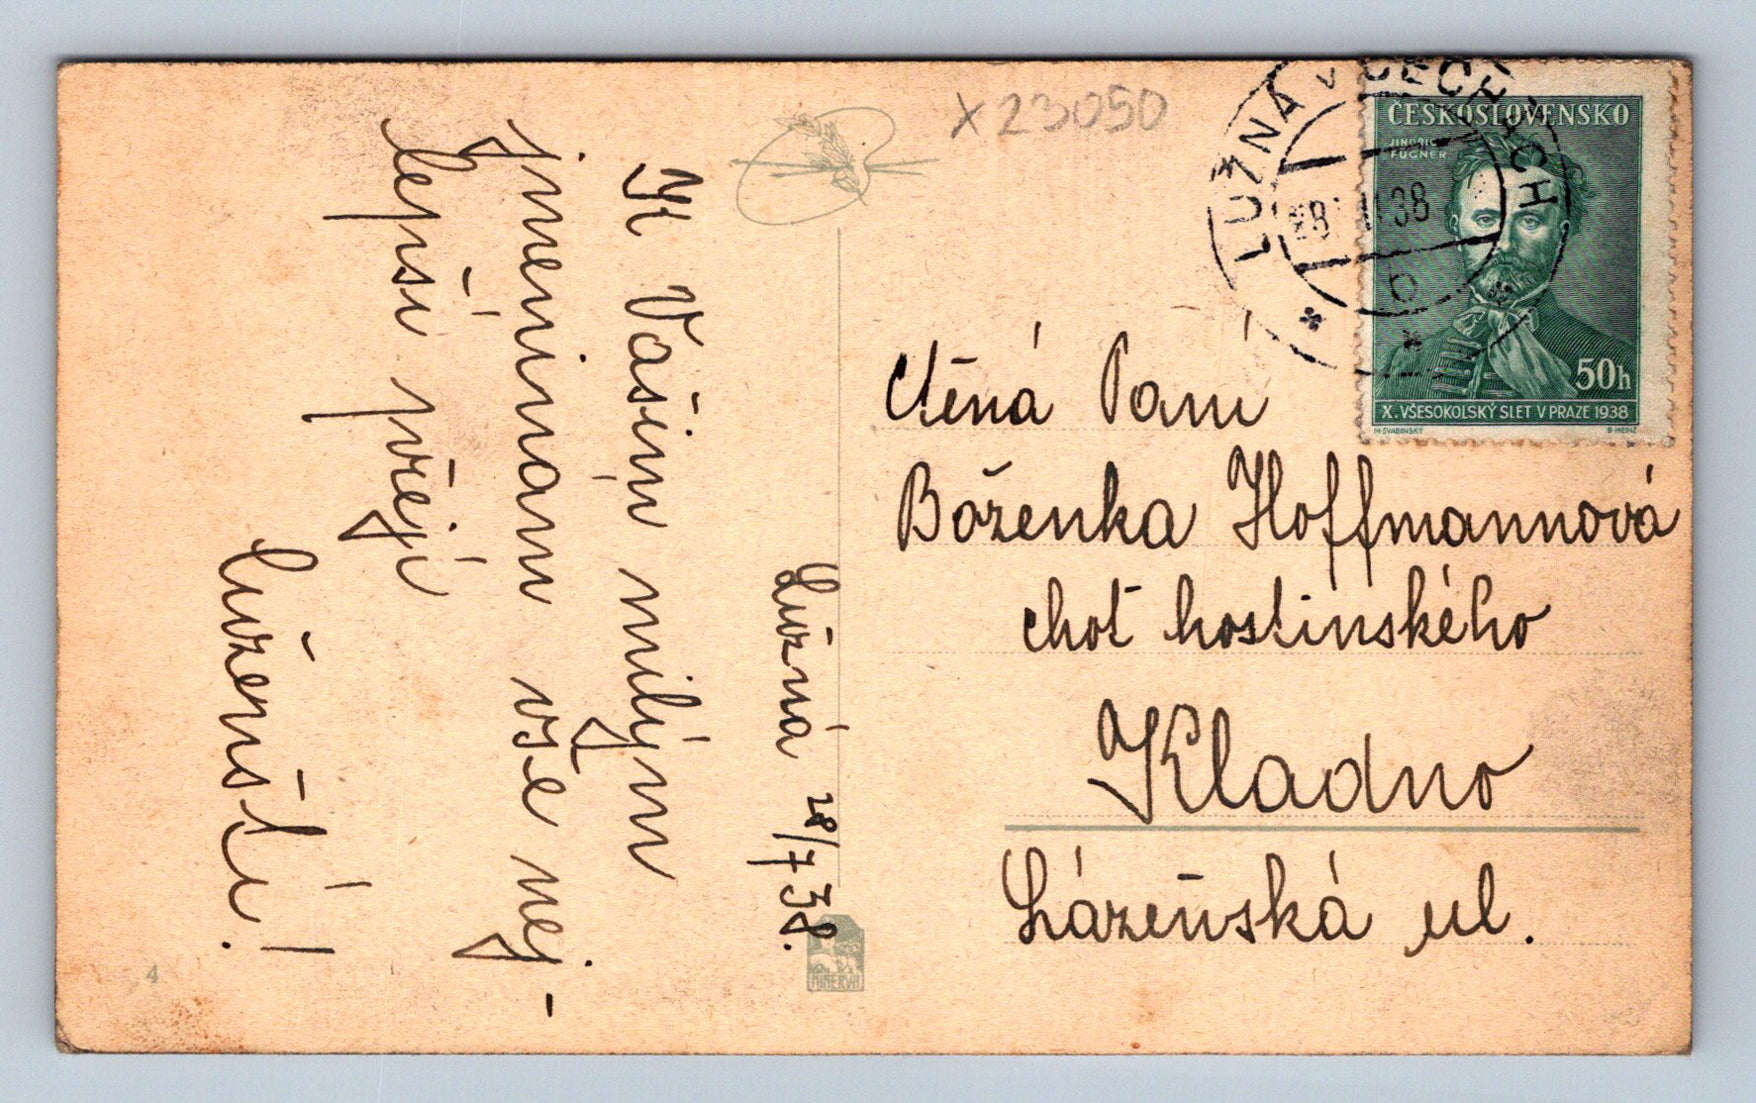 X 23050
LUŽNÁ v ČECHÁCH
28. VII. 38
b
ČESKOSLOVENSKO
JINDŘICH
FÜGNER
50h
X. VŠESOKOLSKÝ SLET V PRAZE 1938
M. ŠVABINSKÝ
B. HEINZ
Lužná 28/7 38.
K Vašim milým
jmeninam vše nej-
lepší přejí
Luženští!
Ctěná Paní
Boženka Hoffmannová
choť hostinského
Kladno
Lázeňská ul.
MINERVA
4